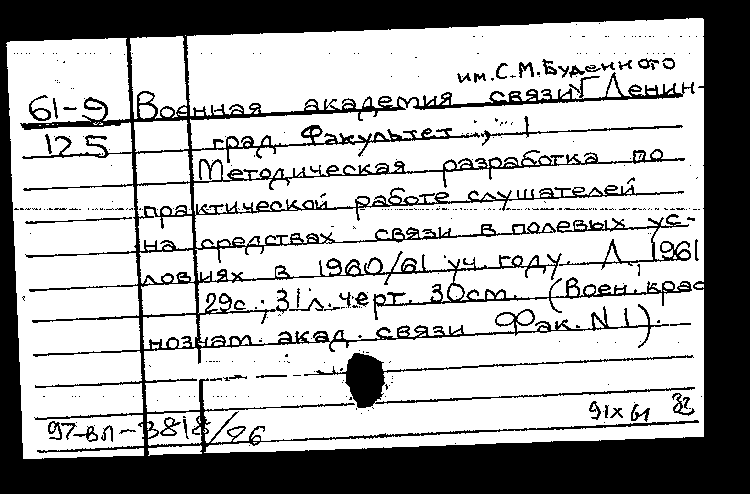 им. С.М. Буденного
61-9 Военная академия связи Ленин-
125 град. Факультет, 1
Методическая разработка по
практической работе слушателей
на средствах связи в полевых ус-
ловиях в 1960/61 уч. году. Л., 1961
29с.; 31л. черт. 30см. (Воен. крас
нознам. акад. связи Фак. N 1).
97-вл-3818/96
91х61